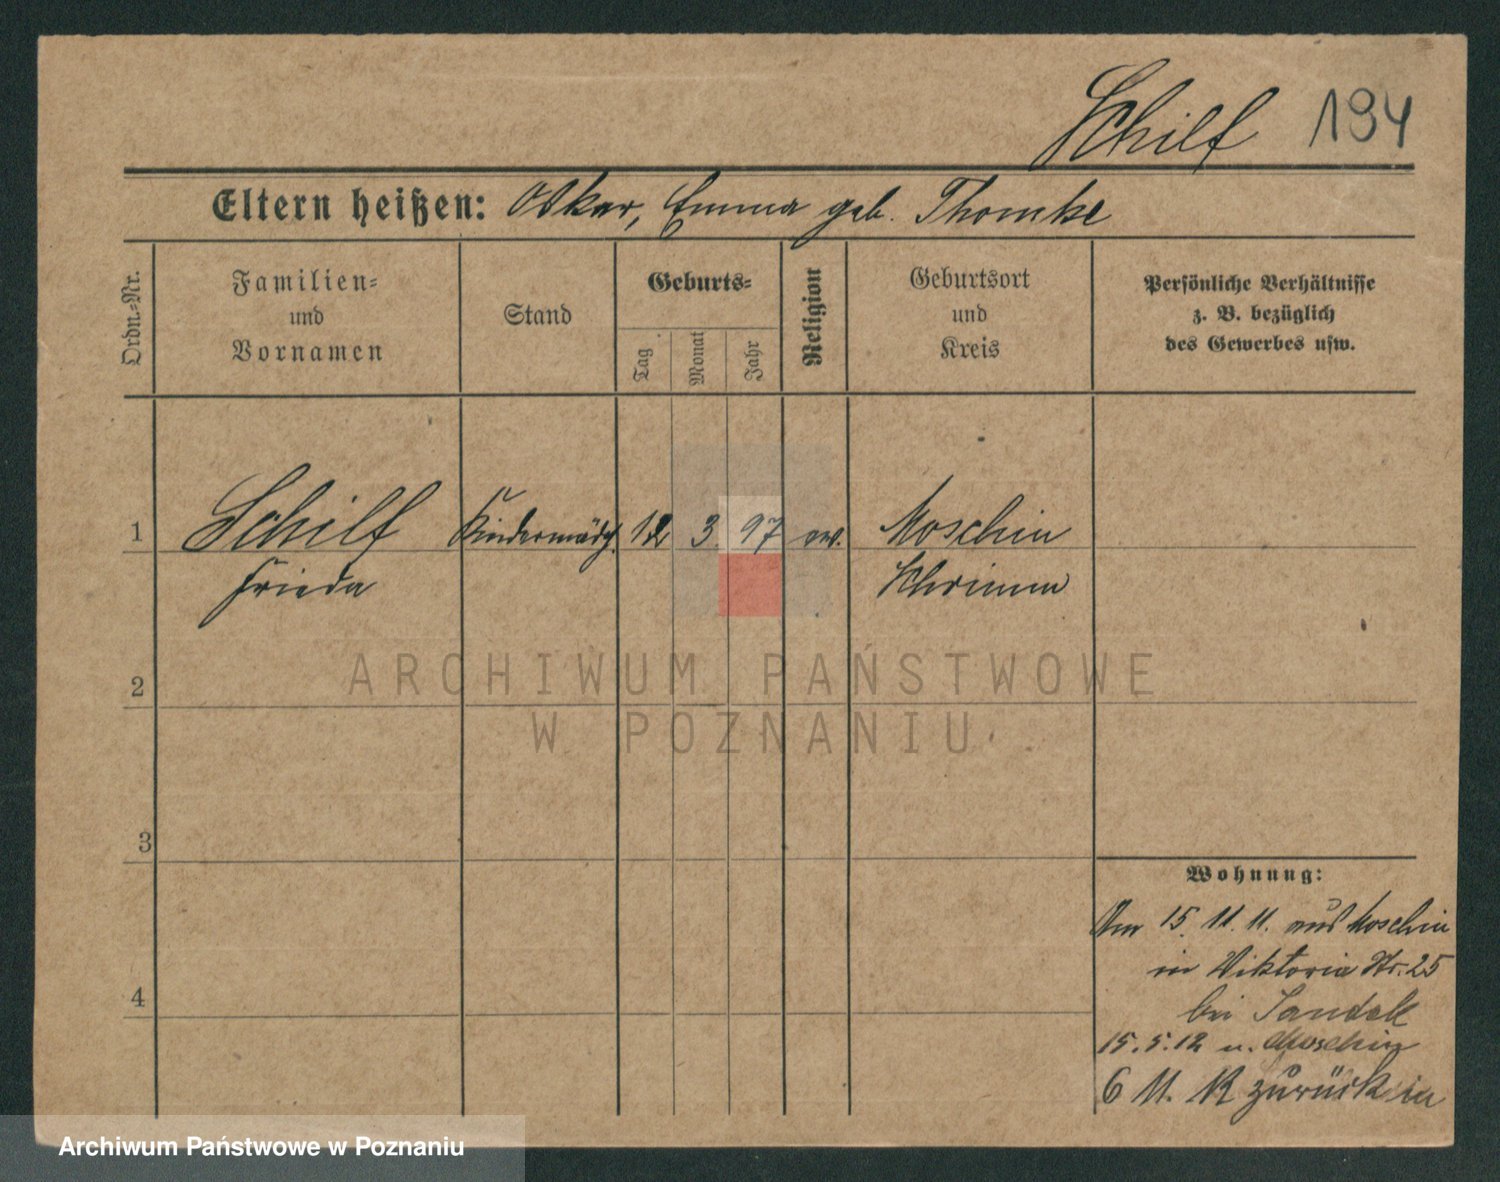 Schilf 194
Eltern heißen: Oskar, Emma geb. Thomke
Ordn.-Nr.
Familien-
und
Vornamen
Stand
Geburts-
Tag
Monat
Jahr
Religion
Geburtsort
und
Kreis
Persönliche Verhältnisse
z. B. bezüglich
des Gewerbes usw.
1 Schilf Kindermädch. 12 3 97 ev. Moschin
Frieda Schrimm
2
ARCHIWUM PAŃSTWOWE
W POZNANIU
3
Wohnung:
Am 15. 11. 11. aus Moschin
in Viktoria Str. 25
bei
4
15.5.12 n. Moschin
6 11. 12 zurück in
Archiwum Państwowe w Poznaniu